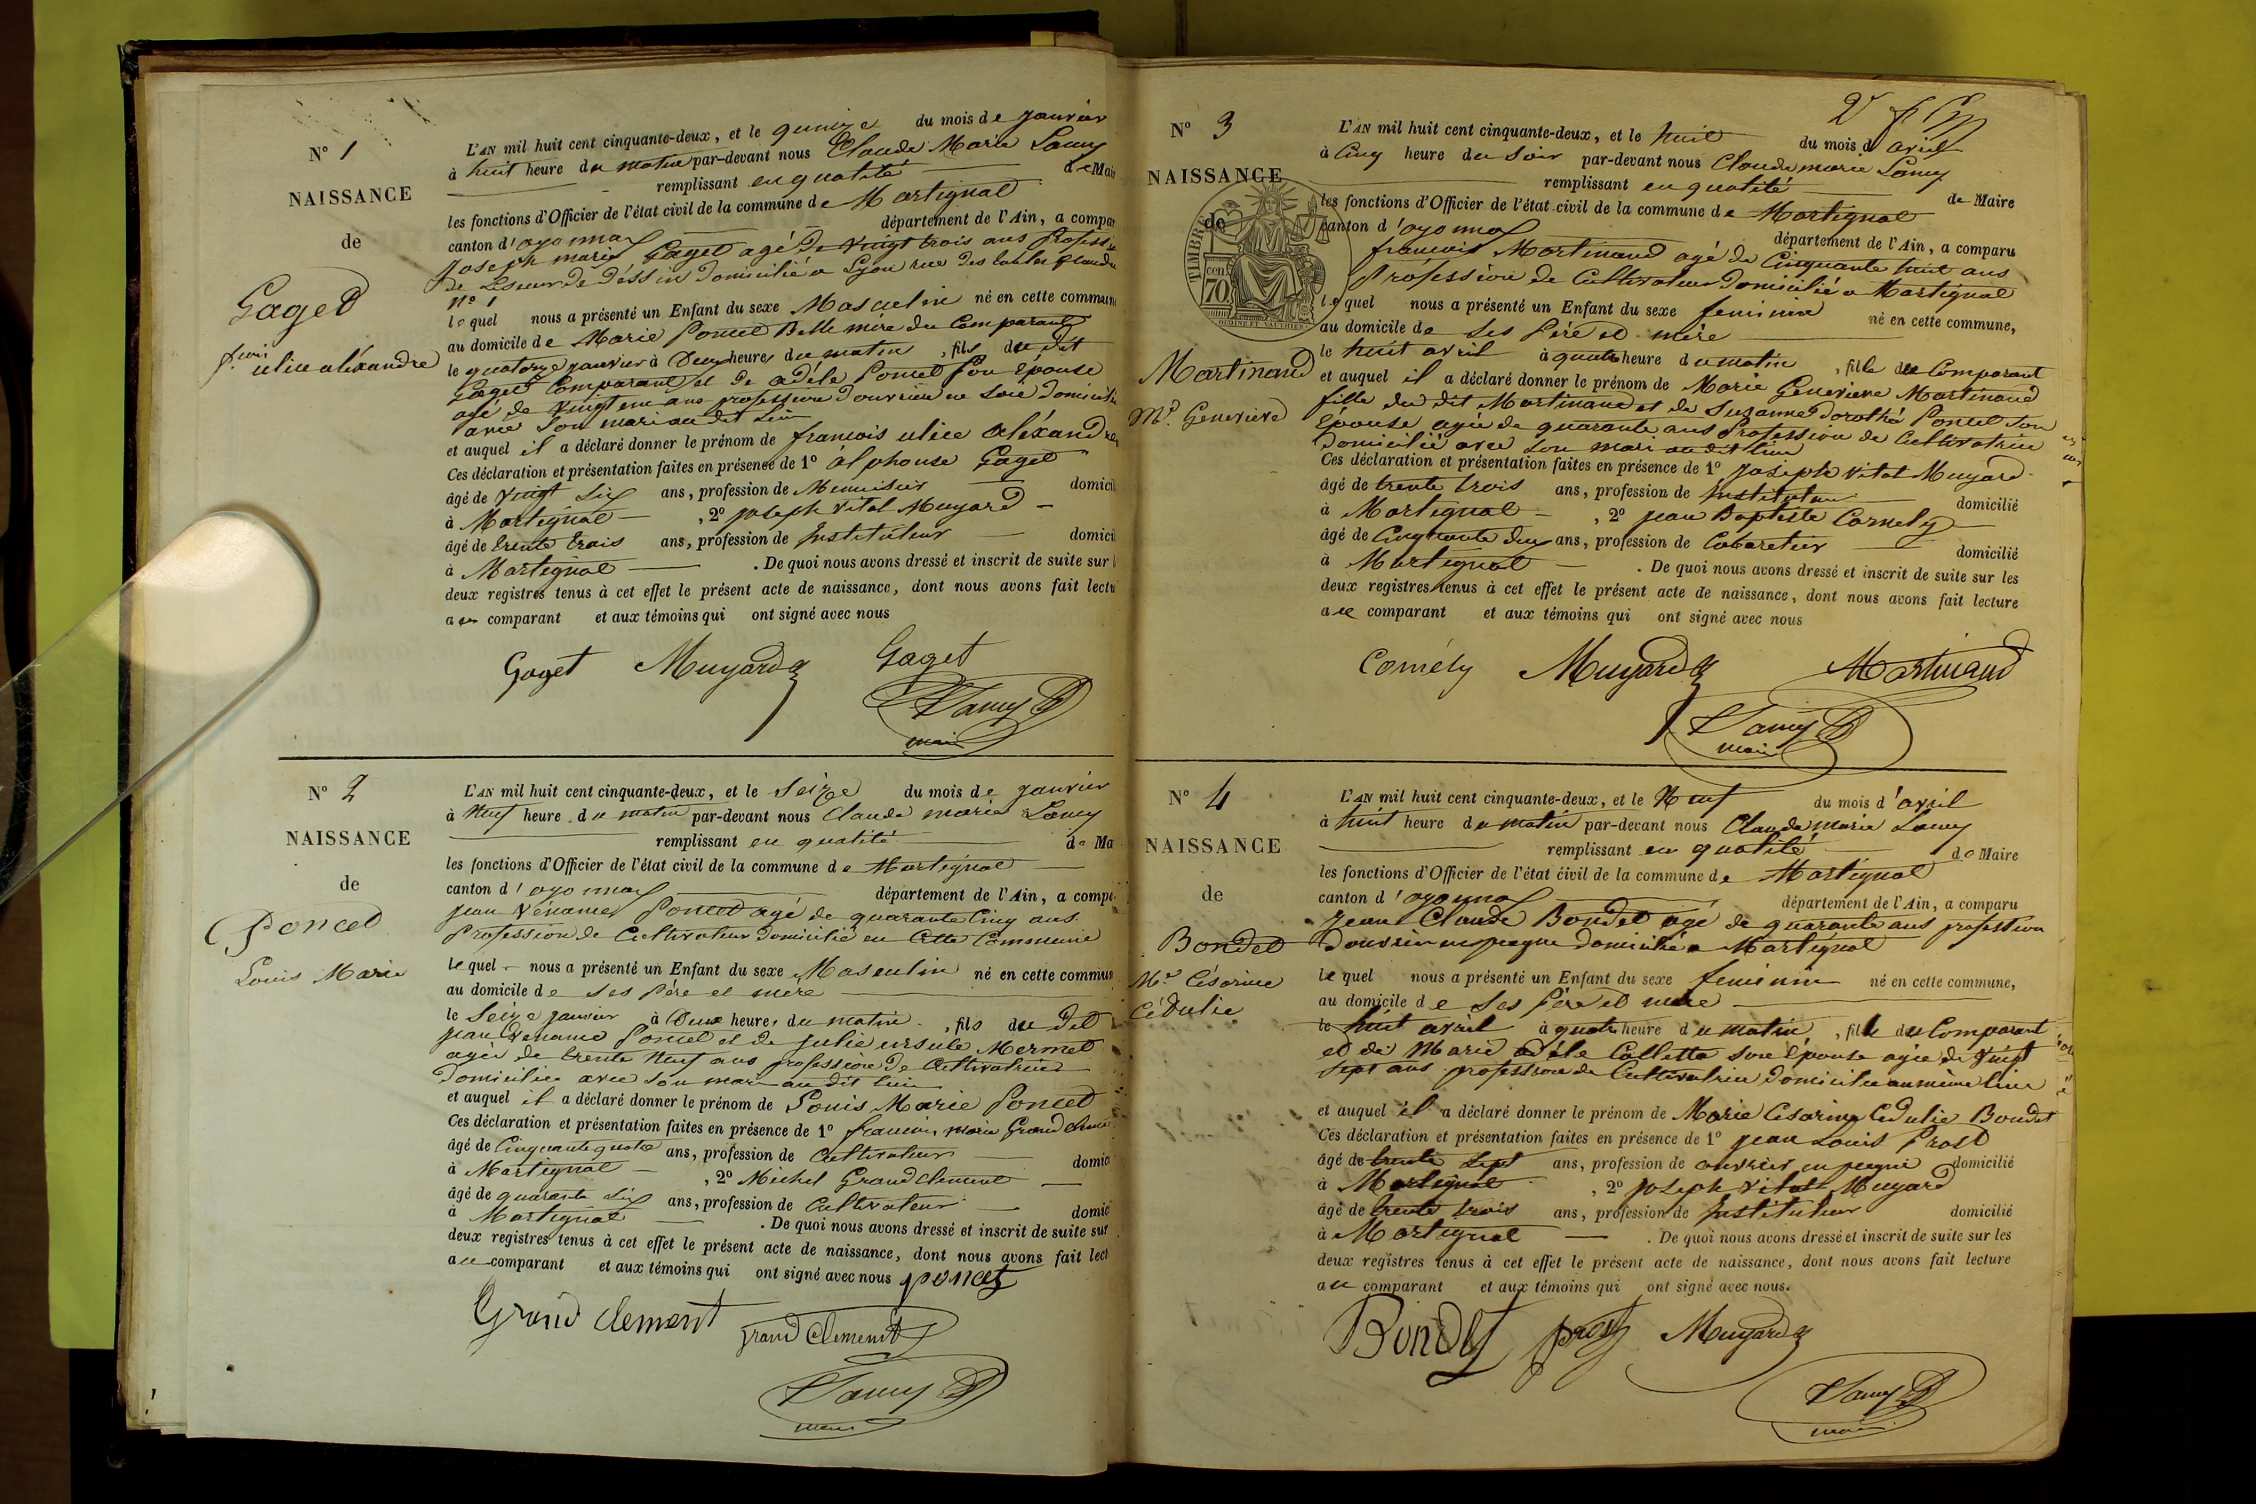 N° 1
NAISSANCE
de
Gaget
f.cois ulice aléxandre
L'AN mil huit cent cinquante-deux, et le quinze du mois de janvier
à huit heure du matin par-devant nous Claude Marie Lamy
remplissant en qualité de Mai
les fonctions d'Officier de l'état civil de la commune de Martignat
canton d'oyonnax département de l'Ain, a compar
Joseph marie Gaget agé de vingt trois ans Profess
de Liseur de Déssin Domicilié a Lyon rue des
N° 1
lequel nous a présenté un Enfant du sexe Masculin né en cette commune
au domicile de Marie Poncet Belle mère du Comparant
le quatorze janvier à Deux heures du matin, fils du dit
Gaget Comparant et de adéle Poncet son épouse
agé de vingt un ans profession d'ouvrière en soie domicilié
avec son mari au dit lieu
et auquel il a déclaré donner le prénom de francois ulice aléxandre
Ces déclaration et présentation faites en présence de 1° alphonse Gaget
âgé de vingt six ans, profession de Menuisier domicil
à Martignat, 2° joseph vital Muyard
âgé de trente trois ans, profession de Instituteur domici
à Martignat. De quoi nous avons dressé et inscrit de suite sur l
deux registres tenus à cet effet le présent acte de naissance, dont nous avons fait lectu
au comparant et aux témoins qui ont signé avec nous
Gaget Muyard Gaget
Lamy
maire
N° 2
NAISSANCE
de
Poncet
Louis Marie
L'AN mil huit cent cinquante-deux, et le seize du mois de janvier
à Neuf heure du matin par-devant nous Claude marie Lamy
remplissant en qualité de Ma
les fonctions d'Officier de l'état civil de la commune de Martignat
canton d'oyonnax département de l'Ain, a compa
jean vénance Poncet agé de quarante Cinq ans
Profession de Cultivateur domicilié en Cette Commune
lequel nous a présenté un Enfant du sexe Masculin né en cette commun
au domicile de ses Père et mère
le seize janvier à Deux heures du matin, fils du dit
jean venance Poncet et de julie ursule Mermet
agée de trente Neuf ans profession de Cultivatrice
Domiciliée avec son mari au dit lieu
et auquel il a déclaré donner le prénom de Louis Marie Poncet
Ces déclaration et présentation faites en présence de 1° francois marie Grand clement
âgé de Cinquante quatre ans, profession de Cultivateur domic
à Martignat, 2° Michel Grandclement
âgé de quarante six ans, profession de Cultivateur domic
à Martignat. De quoi nous avons dressé et inscrit de suite sur
deux registres tenus à cet effet le présent acte de naissance, dont nous avons fait lect
au comparant et aux témoins qui ont signé avec nous poncet
Grand clement grand Clement
Lamy
maire
N° 3
NAISSANCE
de
TIMBRE
cen.
70
Martinand
M.e Genevieve
L'AN mil huit cent cinquante-deux, et le huit du mois d'avril
à Cinq heure du soir par-devant nous Claude marie Lamy
remplissant en qualité de Maire
les fonctions d'Officier de l'état civil de la commune de Martignat
canton d'oyonnax département de l'Ain, a comparu
francois Martinand agé de Cinquante huit ans
Profession de Cultivateur Domicilié a Martignat
lequel nous a présenté un Enfant du sexe feminin né en cette commune,
au domicile de ses Père et mère
le huit avril à quatre heure du matin, fille du Comparant
et auquel il a déclaré donner le prénom de Marie Genevieve Martinand
fille du dit Martinand et de Suzanne Dorothé Poncet son
Epouse agée de quarante ans Profession de Cultivatrice
Domicilié avec son mari au dit lieu
Ces déclaration et présentation faites en présence de 1° Joseph vital Muyard
âgé de trente trois ans, profession de Instituteur domicilié
à Martignat, 2° jean Baptiste Cornely
âgé de Cinquante deux ans, profession de Cabaretier domicilié
à Martignat. De quoi nous avons dressé et inscrit de suite sur les
deux registres tenus à cet effet le présent acte de naissance, dont nous avons fait lecture
au comparant et aux témoins qui ont signé avec nous
Cornély Muyard Martinand
Lamy
maire
N° 4
NAISSANCE
de
Bondet
M.e Césarine
Cédulie
L'AN mil huit cent cinquante-deux, et le Neuf du mois d'avril
à huit heure du matin par-devant nous Claude marie Lamy
remplissant en qualité de Maire
les fonctions d'Officier de l'état civil de la commune de Martignat
canton d'oyonnax département de l'Ain, a comparu
Jean Claude Bondet agé de quarante ans profession
d'ouvrier en peigne domicilié a Martignat
lequel nous a présenté un Enfant du sexe feminin né en cette commune,
au domicile de ses Père et mère
le huit avril à quatre heure du matin, fille du Comparant
et de Marie adéle Colletta son épouse agée de vingt
sept ans profession de Cultivatrice domiciliée au même lieu
et auquel il a déclaré donner le prénom de Marie Cesarine Cedulie Bondet
Ces déclaration et présentation faites en présence de 1° jean Louis Prost
âgé de trente sept ans, profession de ouvrier en peigne domicilié
à Martignat, 2° joseph vital Muyard
âgé de trente trois ans, profession de Instituteur domicilié
à Martignat. De quoi nous avons dressé et inscrit de suite sur les
deux registres tenus à cet effet le présent acte de naissance, dont nous avons fait lecture
au comparant et aux témoins qui ont signé avec nous.
Bondet prost Muyard
Lamy
maire